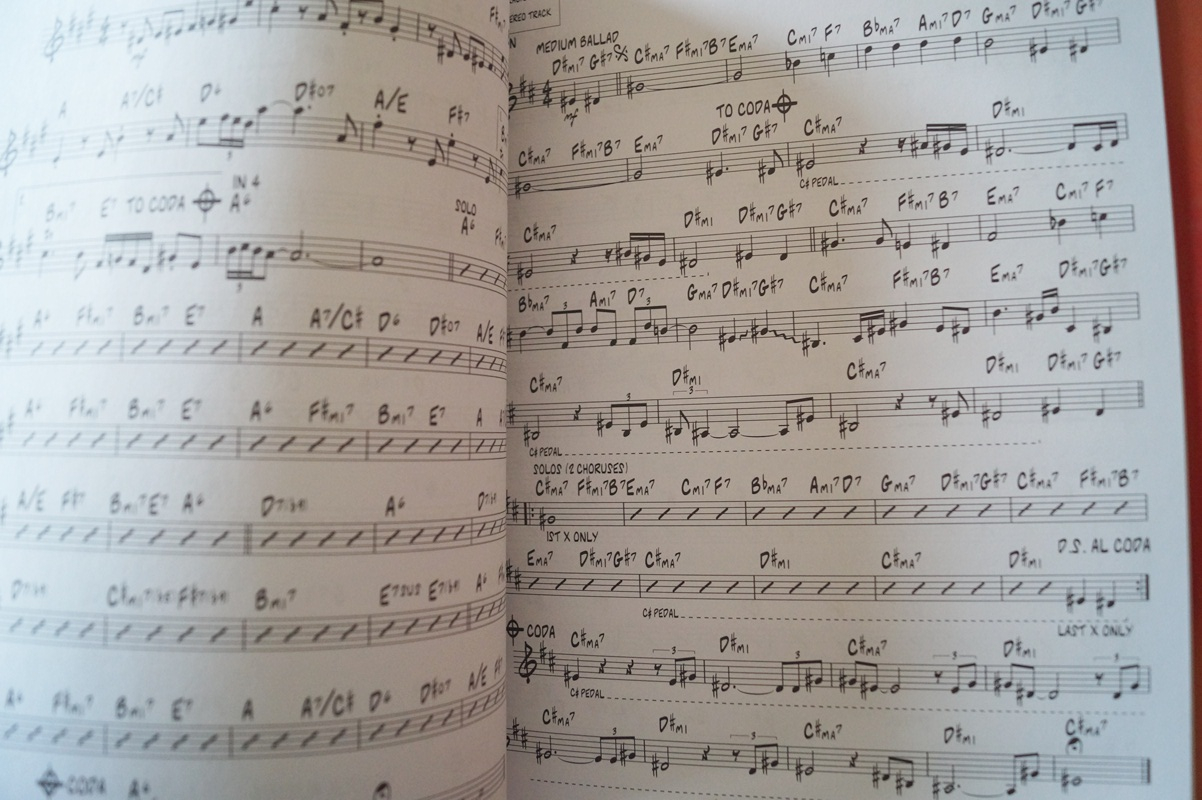 F♯mi
A A7/C♯ D6 D♯o7 A/E F♯7
IN 4
Bmi7 E7 TO CODA A6
SOLO
A6
A6 F♯mi7 Bmi7 E7 A A7/C♯ D6 D♯o7 A/E
A6 F♯mi7 Bmi7 E7 A6 F♯mi7 Bmi7 E7 A
A/E F♯7 Bmi7 E7 A6 D7(♭9) A6 D7(♭9)
D7(♭9) Bmi7 E7SUS E7(♭9) A6
A6 F♯mi7 Bmi7 E7 A A7/C♯ D6 D♯o7 A/E F♯7
CODA A6
ERED TRACK
MEDIUM BALLAD
D♯mi7 G♯7 C♯ma7 F♯mi7 B7 Ema7 Cmi7 F7 Bbma7 Ami7 D7 Gma7 D♯mi7 G♯7
mf
TO CODA
C♯ma7 F♯mi7 B7 Ema7 D♯mi7 G♯7 C♯ma7 D♯mi
C♯ PEDAL
C♯ma7 D♯mi D♯mi7 G♯7 C♯ma7 F♯mi7 B7 Ema7 Cmi7 F7
Bbma7 Ami7 D7 Gma7 D♯mi7 G♯7 C♯ma7 F♯mi7 B7 Ema7 D♯mi7 G♯7
3 3
C♯ma7 D♯mi C♯ma7 D♯mi D♯mi7 G♯7
3 3
C♯ PEDAL
SOLOS (2 CHORUSES)
C♯ma7 F♯mi7 B7 Ema7 Cmi7 F7 Bbma7 Ami7 D7 Gma7 D♯mi7 G♯7 C♯ma7 F♯mi7 B7
1ST X ONLY
D.S. AL CODA
Ema7 D♯mi7 G♯7 C♯ma7 D♯mi C♯ma7 D♯mi
C♯ PEDAL
LAST X ONLY
CODA
C♯ma7 D♯mi C♯ma7 D♯mi
3 3 3 3
C♯ PEDAL
C♯ma7 D♯mi C♯ma7 D♯mi C♯ma7
3 3